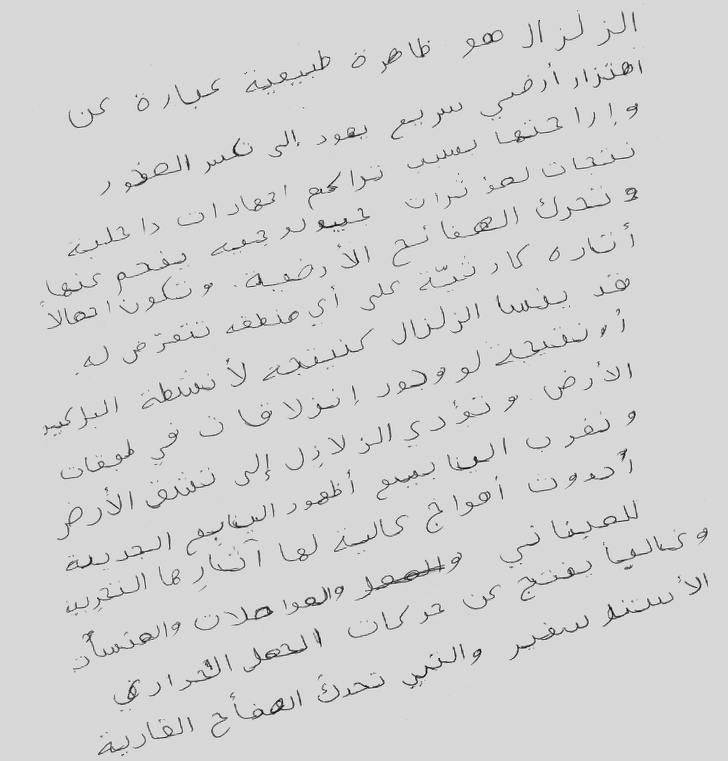 الزلزال هو ظاهرة طبيعية عبارة عن
اهتزاز أرضي سريع يعود إلى تكسر الصخور
وإزاحتها بسبب تراكم اجهادات داخلية
نتجات لمؤثرات جيولوجيه ينجم عنها
وتحرك الصفائح الأرضية. وتكون اجهالاً
أثاره كارثيّة على أي منطقه تتعرّض له.
قد ينسا الزلزال كنتيجة لأنشطة البراكين
أو نتيجة لووجود إنزلاقات في طبقات
الأرض. وتؤدي الزلازل إلى تشقق الأرض
ونضرب الينابيع أظهور الينابيع الجديدة
أحدوث أمواج عالية لها آثارها التخريبيه
للمباني والمواصلات والمنسأت
وغالبأ ينتج عن حركات الحمل الحراري
الأستنوسفير والتي تحرك الصفأح القارية